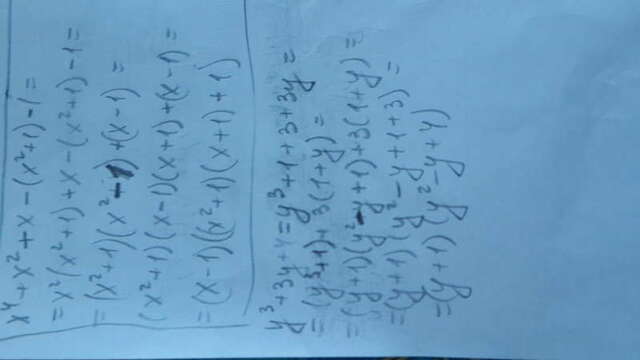 x⁴+x²+x-(x²+1)-1=
=x²(x²+1)+x-(x²+1)-1=
=(x²+1)(x²-1)+(x-1)=
(x²+1)(x-1)(x+1)+(x-1)=
=(x-1)((x²+1)(x+1)+1)
y³+3y+4=y³+1+3+3y=
=(y³+1)+3(1+y)=
=(y+1)(y²-y+1)+3(1+y)=
=(1+y)(y²-y+1+3)=
=(1+y)(y²-y+4)